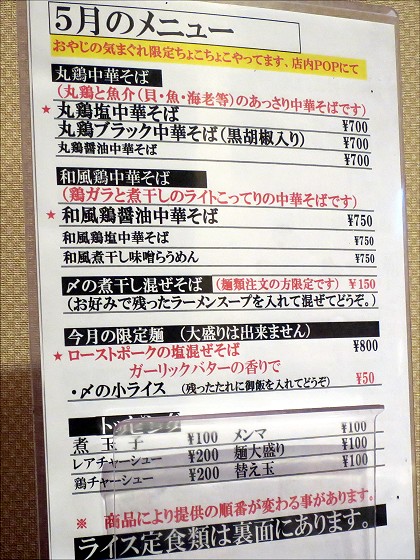 5月のメニュー
おやじの気まぐれ限定ちょこちょこやってます、店内POPにて
丸鶏中華そば
(丸鶏と魚介(貝・魚・海老等)のあっさり中華そばです)
★丸鶏塩中華そば ¥700
丸鶏ブラック中華そば(黒胡椒入り) ¥700
丸鶏醤油中華そば ¥700
和風鶏中華そば
(鶏ガラと煮干しのライトこってりの中華そばです)
★和風鶏醤油中華そば ¥750
和風鶏塩中華そば ¥750
和風煮干し味噌らうめん ¥750
〆の煮干し混ぜそば (麺類注文の方限定です) ¥150
(お好みで残ったラーメンスープを入れて混ぜてどうぞ。)
今月の限定麺 (大盛りは出来ません)
★ローストポークの塩混ぜそば ¥800
ガーリックバターの香りで
・〆の小ライス (残ったたれに御飯を入れてどうぞ) ¥50
煮玉子 ¥100 メンマ ¥100
レアチャーシュー ¥200 麺大盛り ¥100
鶏チャーシュー ¥200 替え玉 ¥100
※ 商品により提供の順番が変わる事があります。
ライス定食類は裏面にあります。